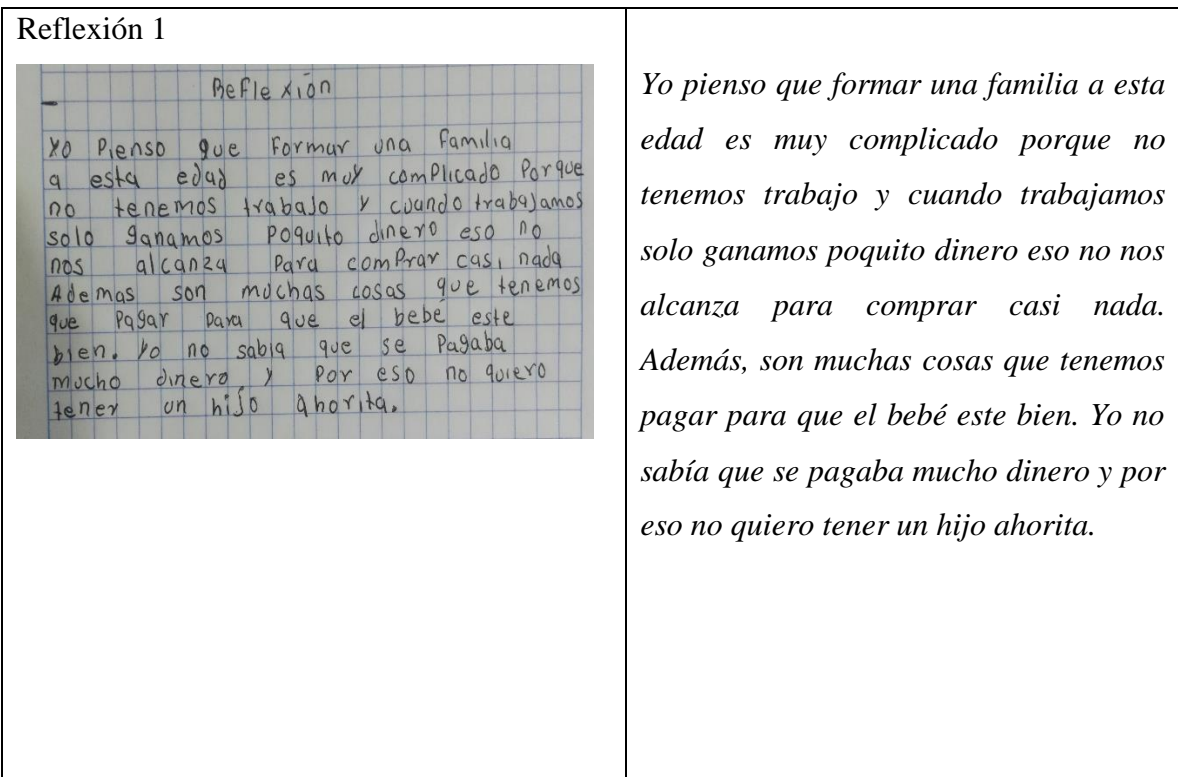 Reflexión 1
Reflexión
Yo Pienso que Formar una Familia
a esta edad es muy complicado Porque
no tenemos trabajo y cuando trabajamos
solo ganamos Poquito dinero eso no
nos alcanza Para comPrar casi nada
Ademas son muchas cosas que tenemos
que Pagar Para que el bebé este
bien. Yo no sabia que se Pagaba
mucho dinero y Por eso no quiero
tener un hijo ahorita.
Yo pienso que formar una familia a esta
edad es muy complicado porque no
tenemos trabajo y cuando trabajamos
solo ganamos poquito dinero eso no nos
alcanza para comprar casi nada.
Además, son muchas cosas que tenemos
pagar para que el bebé este bien. Yo no
sabía que se pagaba mucho dinero y por
eso no quiero tener un hijo ahorita.